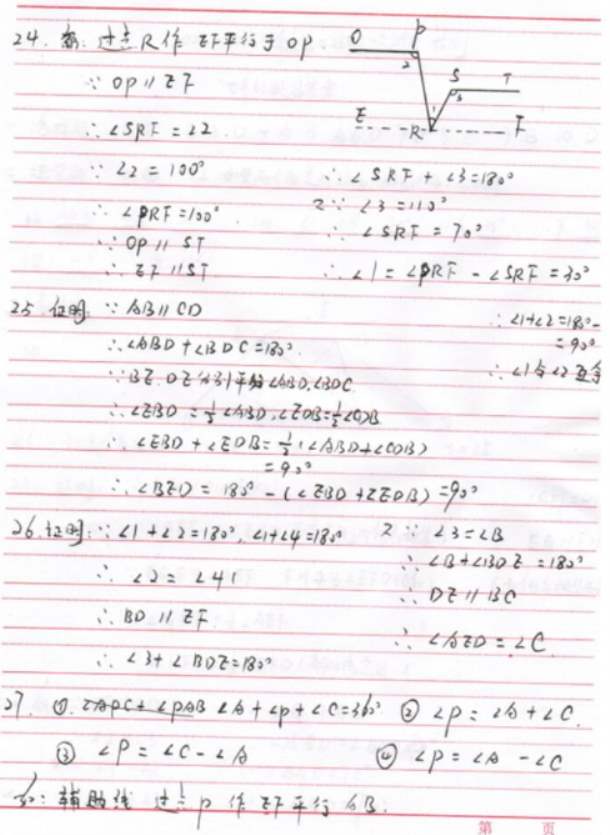 24. 解: 过点R作EF平行于OP
O P
2
S T
3
1
E R F
∵ OP∥EF
∴ ∠SRF = ∠2
∵ ∠2 = 100°
∴ ∠PRF = 100°
∵ OP∥ST
∴ EF∥ST
∴ ∠SRF + ∠3 = 180°
又∵ ∠3 = 110°
∴ ∠SRF = 70°
∴ ∠1 = ∠PRF - ∠SRF = 30°
25. 证明 ∵ AB∥CD
∴ ∠ABD + ∠BDC = 180°.
∵ BE. DE分别平分∠ABD, ∠BDC
∴ ∠EBD = ½∠ABD, ∠EDB = ½∠CDB
∴ ∠EBD + ∠EDB = ½(∠ABD + ∠CDB)
= 90°
∴ ∠BED = 180° - (∠EBD + ∠EDB) = 90°
∴ ∠1+∠2 = 180° -
= 90°
∴ ∠1与∠2互余
26. 证明: ∵ ∠1 + ∠2 = 180°, ∠1+∠4 = 180°
∴ ∠2 = ∠4
∴ BD∥EF
∴ ∠3 + ∠BDE = 180°
又∵ ∠3 = ∠B
∴ ∠B + ∠BDE = 180°
∴ DE∥BC
∴ ∠AED = ∠C
27. ①. ∠APC + ∠PAB ∠A + ∠P + ∠C = 360° ② ∠P = ∠A + ∠C.
③ ∠P = ∠C - ∠A ④ ∠P = ∠A - ∠C
解: 辅助线 过点P作EF平行AB.
第 页